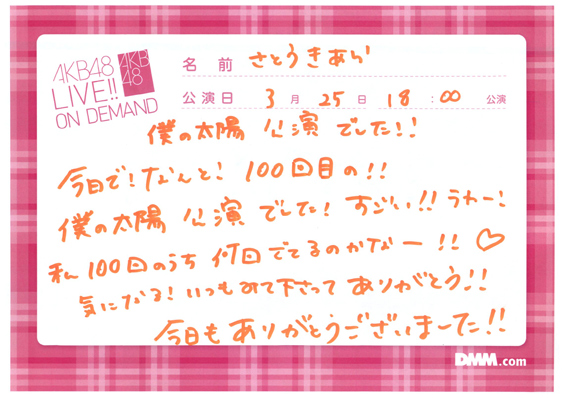 AKB48
LIVE!!
ON DEMAND
AKB
48
名前 さとうきあら
公演日 3月25日 18:00 公演
僕の太陽 公演 でした!!
今日で!なんと! 100回目の!!
僕の太陽 公演 でした! すごい!! うわー!
私100回のうち 何回でてるのかなー!! ♡
気になる!いつもみて下さって ありがとう!!
今日もありがとうございまーた!!
DMM.com